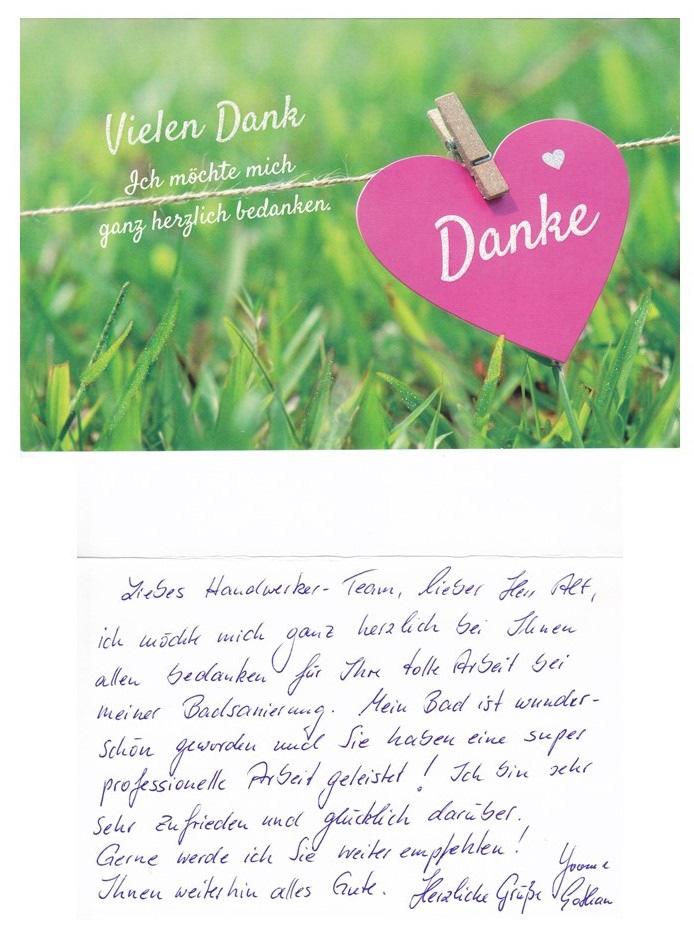 Vielen Dank
Ich möchte mich
ganz herzlich bedanken.
Danke
Liebes Handwerker-Team, lieber Herr Alt,
ich möchte mich ganz herzlich bei Ihnen
allen bedanken für Ihre tolle Arbeit bei
meiner Badsanierung. Mein Bad ist wunder-
schön geworden und Sie haben eine super
professionelle Arbeit geleistet! Ich bin sehr
sehr zufrieden und glücklich darüber.
Gerne werde ich Sie weiterempfehlen!
Ihnen weiterhin alles Gute. Herzliche Grüße
Yvonne